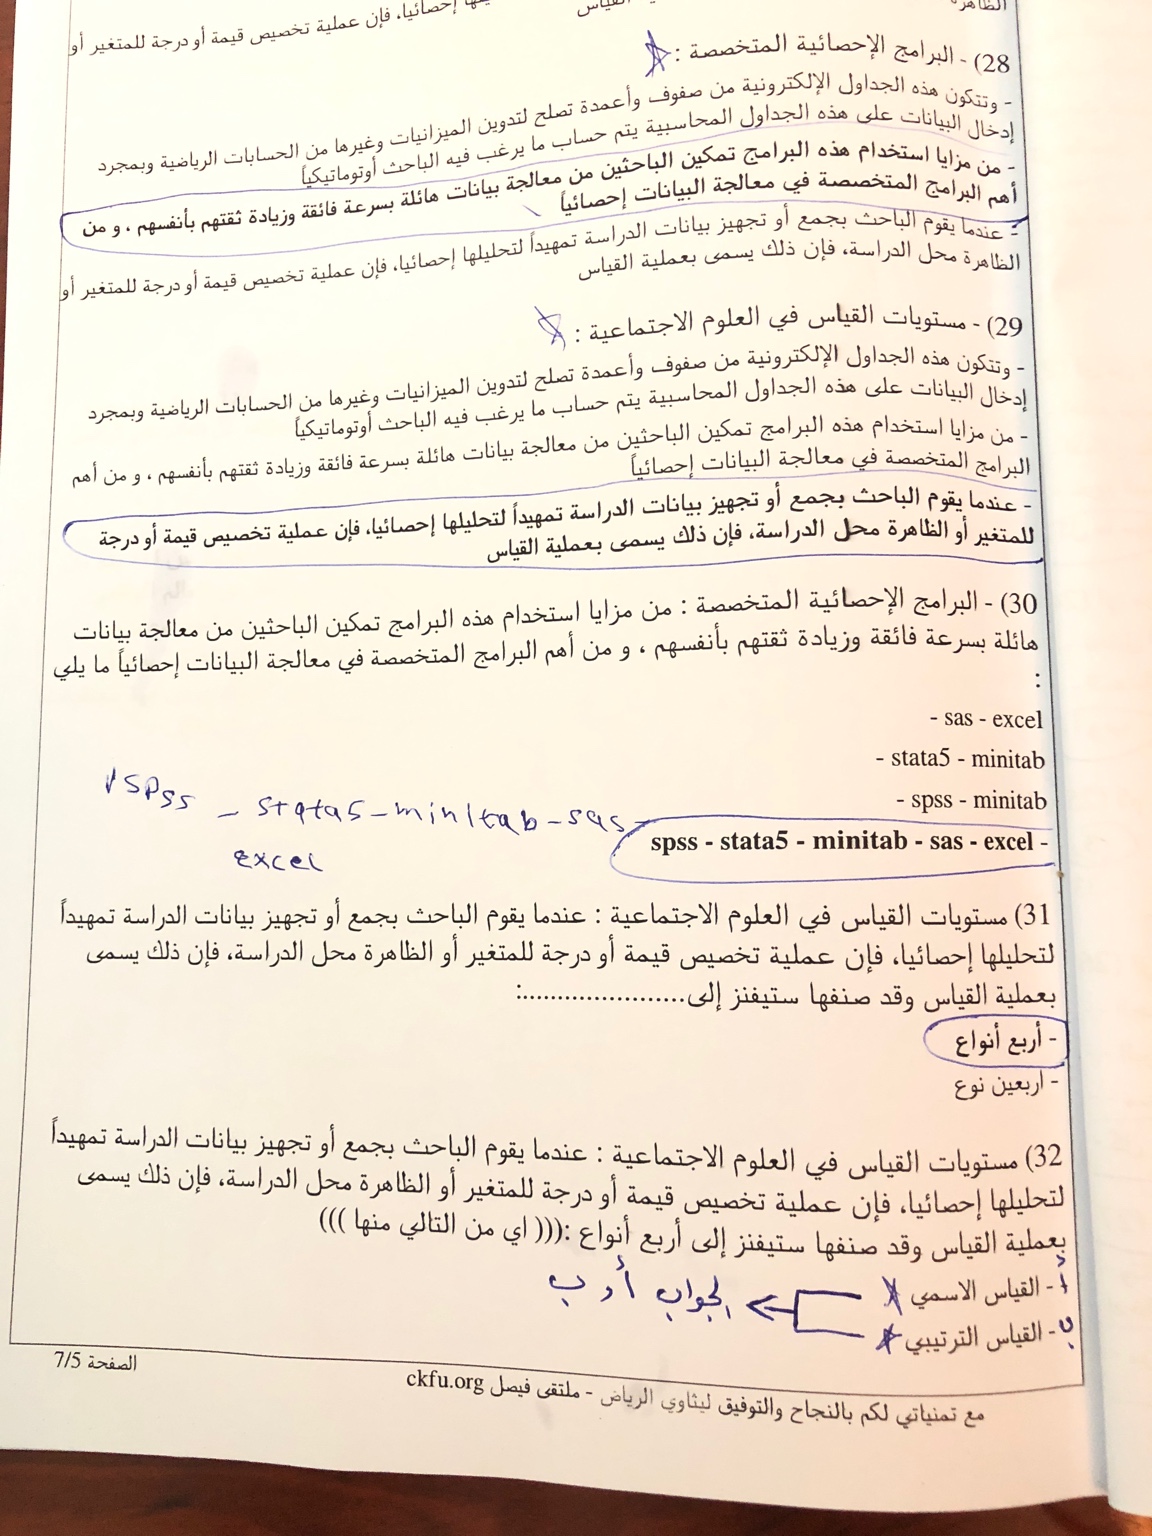 الظاهرة القياس
ـيلها إحصائيا، فإن عملية تخصيص قيمة أو درجة للمتغير أو
28) - البرامج الإحصائية المتخصصة :
- وتتكون هذه الجداول الإلكترونية من صفوف وأعمدة تصلح لتدوين الميزانيات وغيرها من الحسابات الرياضية وبمجرد
إدخال البيانات على هذه الجداول المحاسبية يتم حساب ما يرغب فيه الباحث أوتوماتيكياً
- من مزايا استخدام هذه البرامج تمكين الباحثين من معالجة بيانات هائلة بسرعة فائقة وزيادة ثقتهم بأنفسهم ، و من
أهم البرامج المتخصصة في معالجة البيانات إحصائياً
- عندما يقوم الباحث بجمع أو تجهيز بيانات الدراسة تمهيداً لتحليلها إحصائيا، فإن عملية تخصيص قيمة أو درجة للمتغير أو
الظاهرة محل الدراسة، فإن ذلك يسمى بعملية القياس
29) - مستويات القياس في العلوم الاجتماعية :
- وتتكون هذه الجداول الإلكترونية من صفوف وأعمدة تصلح لتدوين الميزانيات وغيرها من الحسابات الرياضية وبمجرد
إدخال البيانات على هذه الجداول المحاسبية يتم حساب ما يرغب فيه الباحث أوتوماتيكياً
- من مزايا استخدام هذه البرامج تمكين الباحثين من معالجة بيانات هائلة بسرعة فائقة وزيادة ثقتهم بأنفسهم ، و من أهم
البرامج المتخصصة في معالجة البيانات إحصائياً
- عندما يقوم الباحث بجمع أو تجهيز بيانات الدراسة تمهيداً لتحليلها إحصائيا، فإن عملية تخصيص قيمة أو درجة
للمتغير أو الظاهرة محل الدراسة، فإن ذلك يسمى بعملية القياس
30) - البرامج الإحصائية المتخصصة : من مزايا استخدام هذه البرامج تمكين الباحثين من معالجة بيانات
هائلة بسرعة فائقة وزيادة ثقتهم بأنفسهم ، و من أهم البرامج المتخصصة في معالجة البيانات إحصائياً ما يلي
:
- sas - excel
- stata5 - minitab
- spss - minitab
spss - stata5 - minitab - sas - excel -
spss - stata5 - minitab - sas -
excel
31) مستويات القياس في العلوم الاجتماعية : عندما يقوم الباحث بجمع أو تجهيز بيانات الدراسة تمهيداً
لتحليلها إحصائيا، فإن عملية تخصيص قيمة أو درجة للمتغير أو الظاهرة محل الدراسة، فإن ذلك يسمى
بعملية القياس وقد صنفها ستيفنز إلى.....................:
- أربع أنواع
- اربعين نوع
32) مستويات القياس في العلوم الاجتماعية : عندما يقوم الباحث بجمع أو تجهيز بيانات الدراسة تمهيداً
لتحليلها إحصائيا، فإن عملية تخصيص قيمة أو درجة للمتغير أو الظاهرة محل الدراسة، فإن ذلك يسمى
بعملية القياس وقد صنفها ستيفنز إلى أربع أنواع :((( اي من التالي منها )))
أ - القياس الاسمي
الجواب أ و ب
ب - القياس الترتيبي
الصفحة 7/5
مع تمنياتي لكم بالنجاح والتوفيق ليثاوي الرياض - ملتقى فيصل ckfu.org